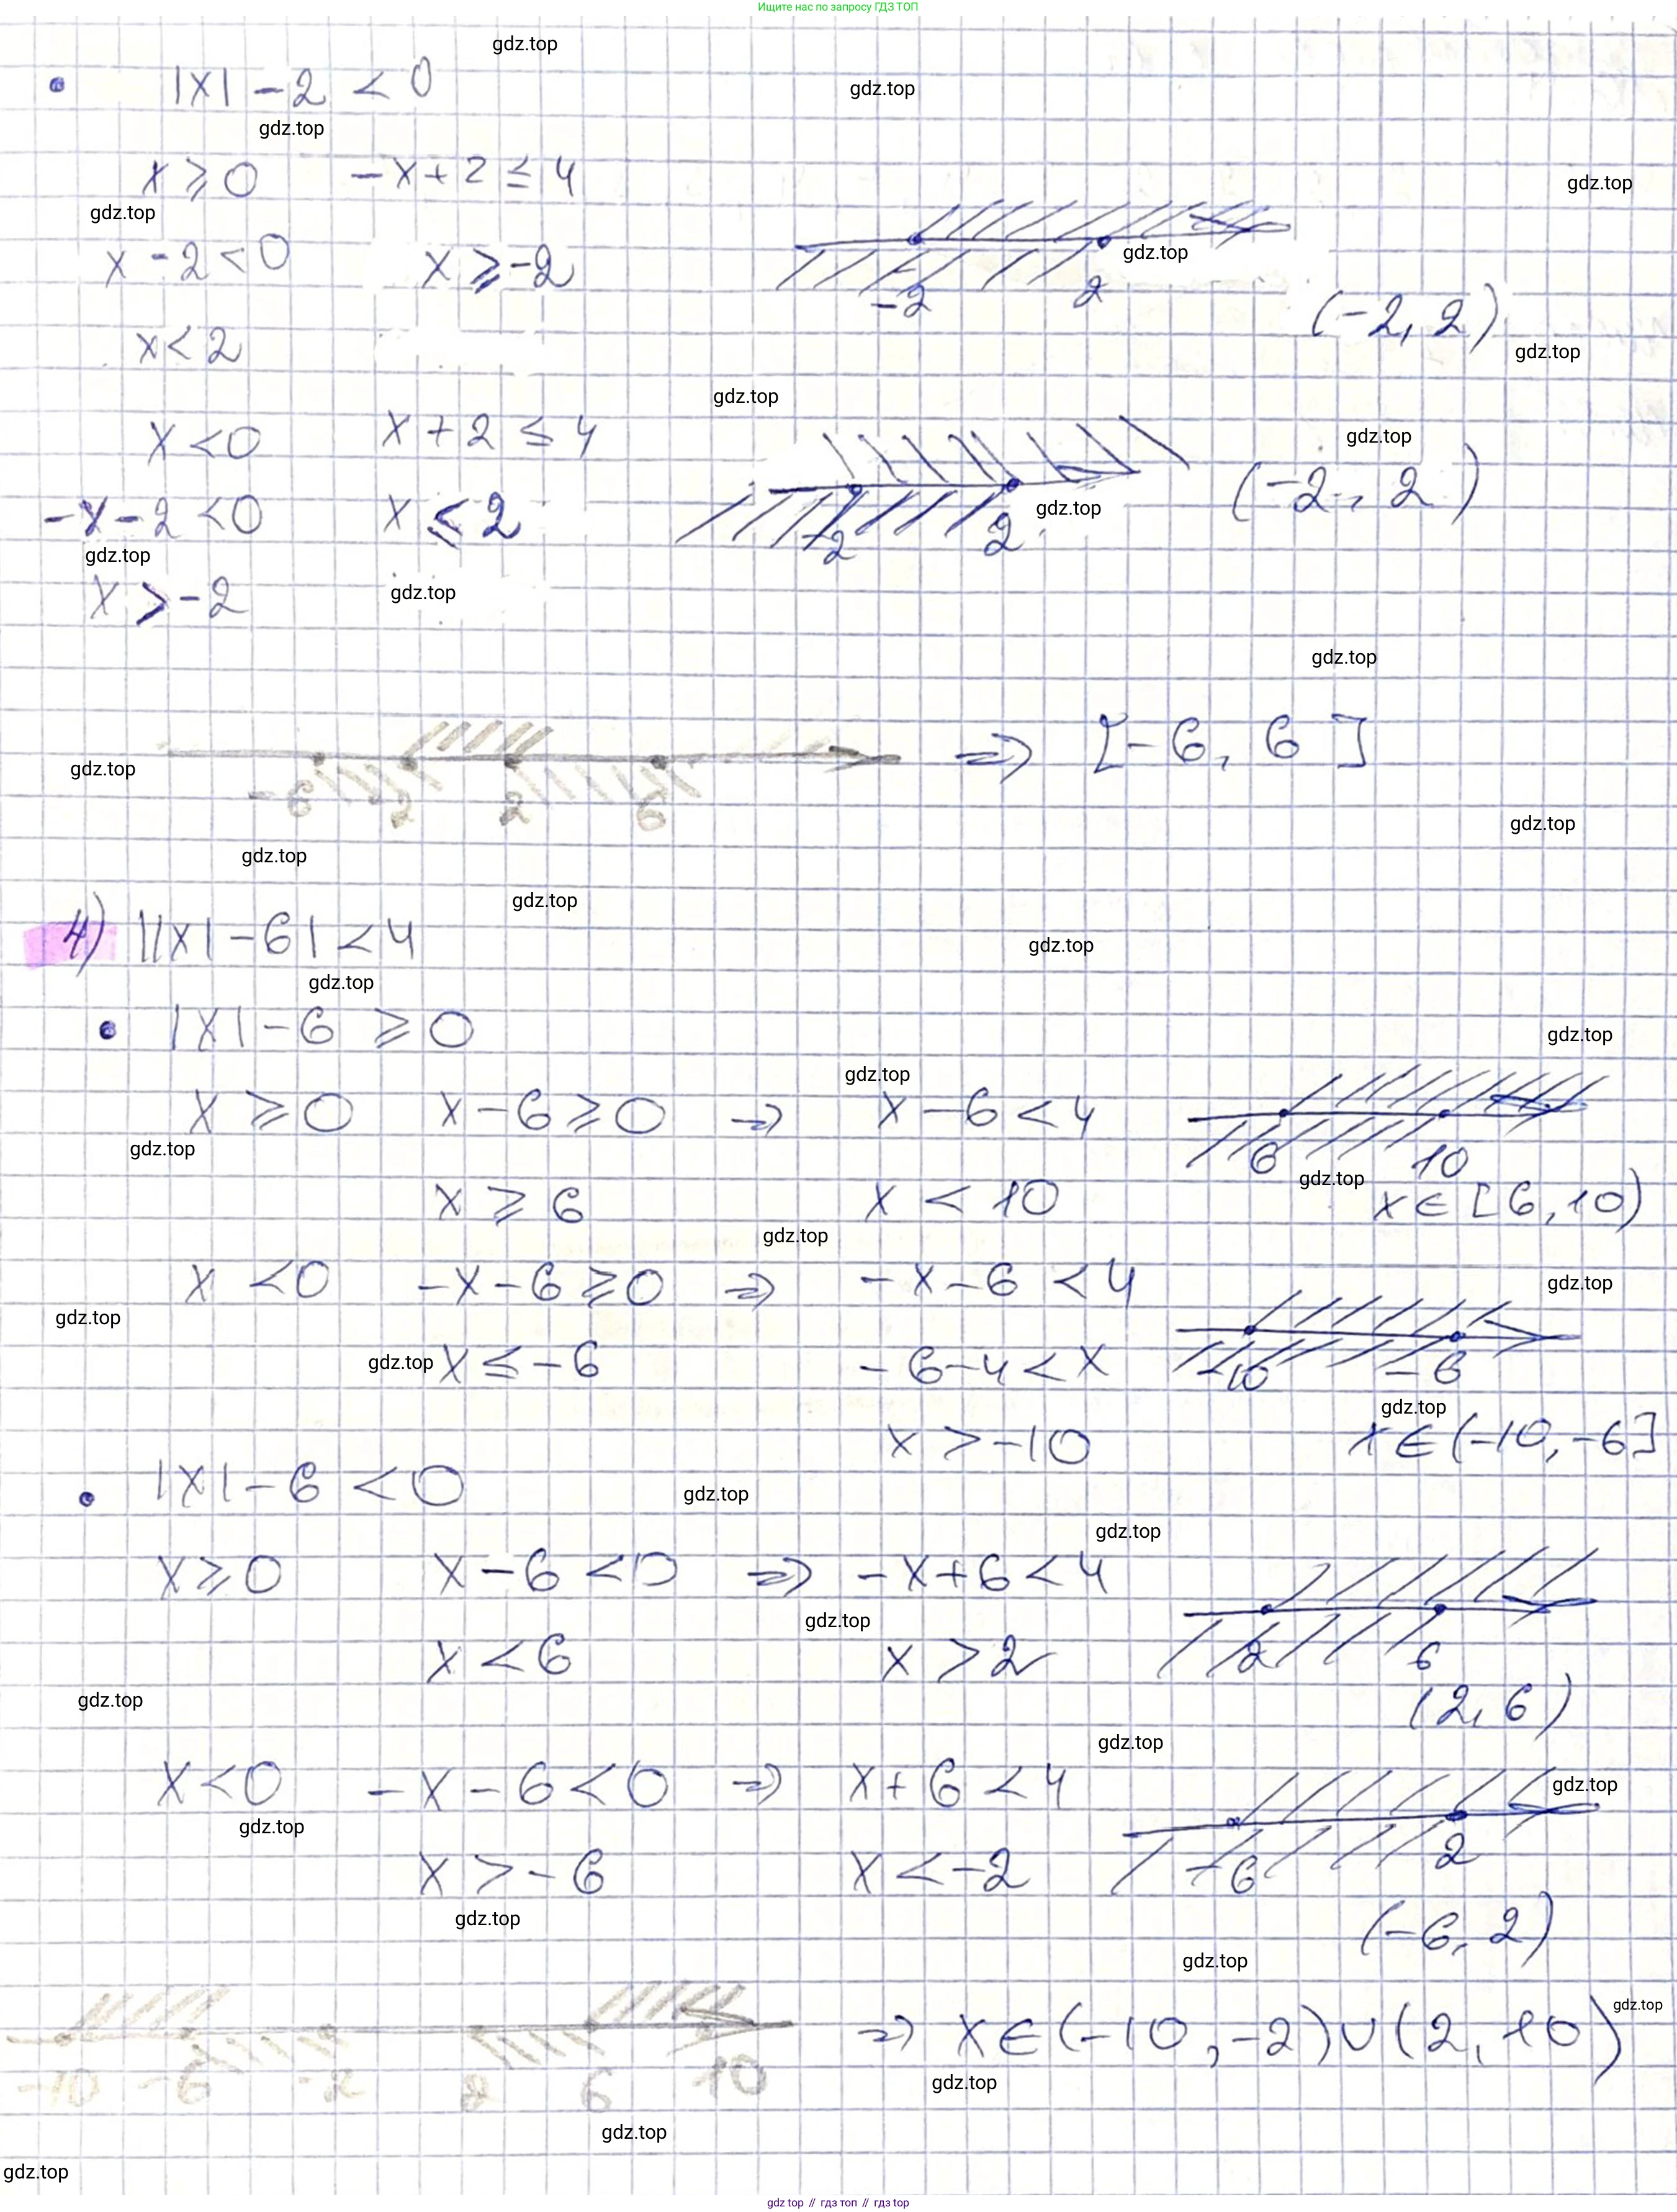 Ищите нас по запросу ГДЗ ТОП
gdz.top
|x| - 2 < 0
gdz.top
gdz.top
x ⩾ 0 -x + 2 ≤ 4
gdz.top
gdz.top
x - 2 < 0 x ⩾ -2
gdz.top
-2 2
(-2, 2)
x < 2
gdz.top
gdz.top
x < 0 x + 2 ≤ 4
gdz.top
-x - 2 < 0 x ≤ 2
gdz.top
-2 2
(-2, 2)
gdz.top
x > -2
gdz.top
gdz.top
⇒ [-6, 6]
gdz.top
2 2 6
gdz.top
gdz.top
gdz.top
4) ||x| - 6| < 4
gdz.top
gdz.top
|x| - 6 ⩾ 0
gdz.top
gdz.top
x ⩾ 0 x - 6 ⩾ 0 ⇒ x - 6 < 4
gdz.top
6 10
gdz.top
x ⩾ 6 x < 10 x ∈ [6, 10)
gdz.top
x < 0 -x - 6 ⩾ 0 ⇒ -x - 6 < 4
gdz.top
gdz.top
gdz.top x ≤ -6 -6 - 4 < x
-10 -6
gdz.top
x > -10 x ∈ (-10, -6]
|x| - 6 < 0
gdz.top
gdz.top
x ⩾ 0 x - 6 < 0 ⇒ -x + 6 < 4
gdz.top
x < 6 x > 2
2 6
gdz.top
(2, 6)
gdz.top
x < 0 -x - 6 < 0 ⇒ x + 6 < 4
gdz.top
gdz.top
x > -6 x < -2
-6 2
gdz.top
(-6, 2)
gdz.top
gdz.top
⇒ x ∈ (-10, -2) ∪ (2, 10)
-10 -6 -2 2 6 10
gdz.top
gdz.top
gdz.top
gdz.top // гдз топ // гдз top